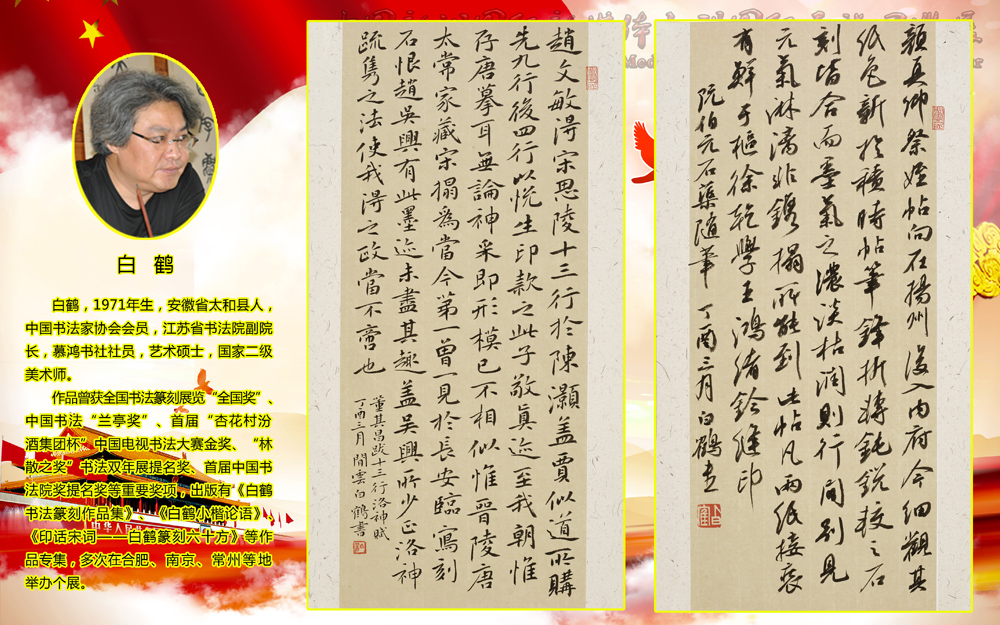 白鹤
白鹤，1971年生，安徽省太和县人，
中国书法家协会会员，江苏省书法院副院
长，慕鸿书社社员，艺术硕士，国家二级
美术师。
作品曾获全国书法篆刻展览“全国奖”、
中国书法“兰亭奖”、首届“杏花村汾
酒集团杯”中国电视书法大赛金奖、“林
散之奖”书法双年展提名奖、首届中国书
法院奖提名奖等重要奖项，出版有《白鹤
书法篆刻作品集》、《白鹤小楷论语》、
《印话宋词——白鹤篆刻六十方》等作
品专集，多次在合肥、南京、常州等地
举办个展。
趙文敏得宋思陵十三行於陳灝蓋賈似道所購
先九行後四行以悅生印款之此子敬真迹至我朝惟
存唐摹耳無論神采即形模已不相似惟晉陵唐
太常家藏宋搨為當今第一曾一見於長安臨寫刻
石恨趙吳興有此墨迹未盡其趣蓋吳興所少正洛神
疏雋之法使我得之政當不啻也
董其昌跋十三行洛神賦
丁酉三月閒雲白鶴書
顏真卿祭姪帖向在揚州後入內府今細觀其
紙色新於積時帖筆鋒折轉鈍銳較之石
刻皆合而墨氣之濃淡枯潤則行間別見
元氣淋漓非鐫搨所能到此帖凡兩紙接裝
有鮮于樞徐乾學王鴻緒鈐縫印
阮伯元石渠隨筆丁酉三月白鶴書